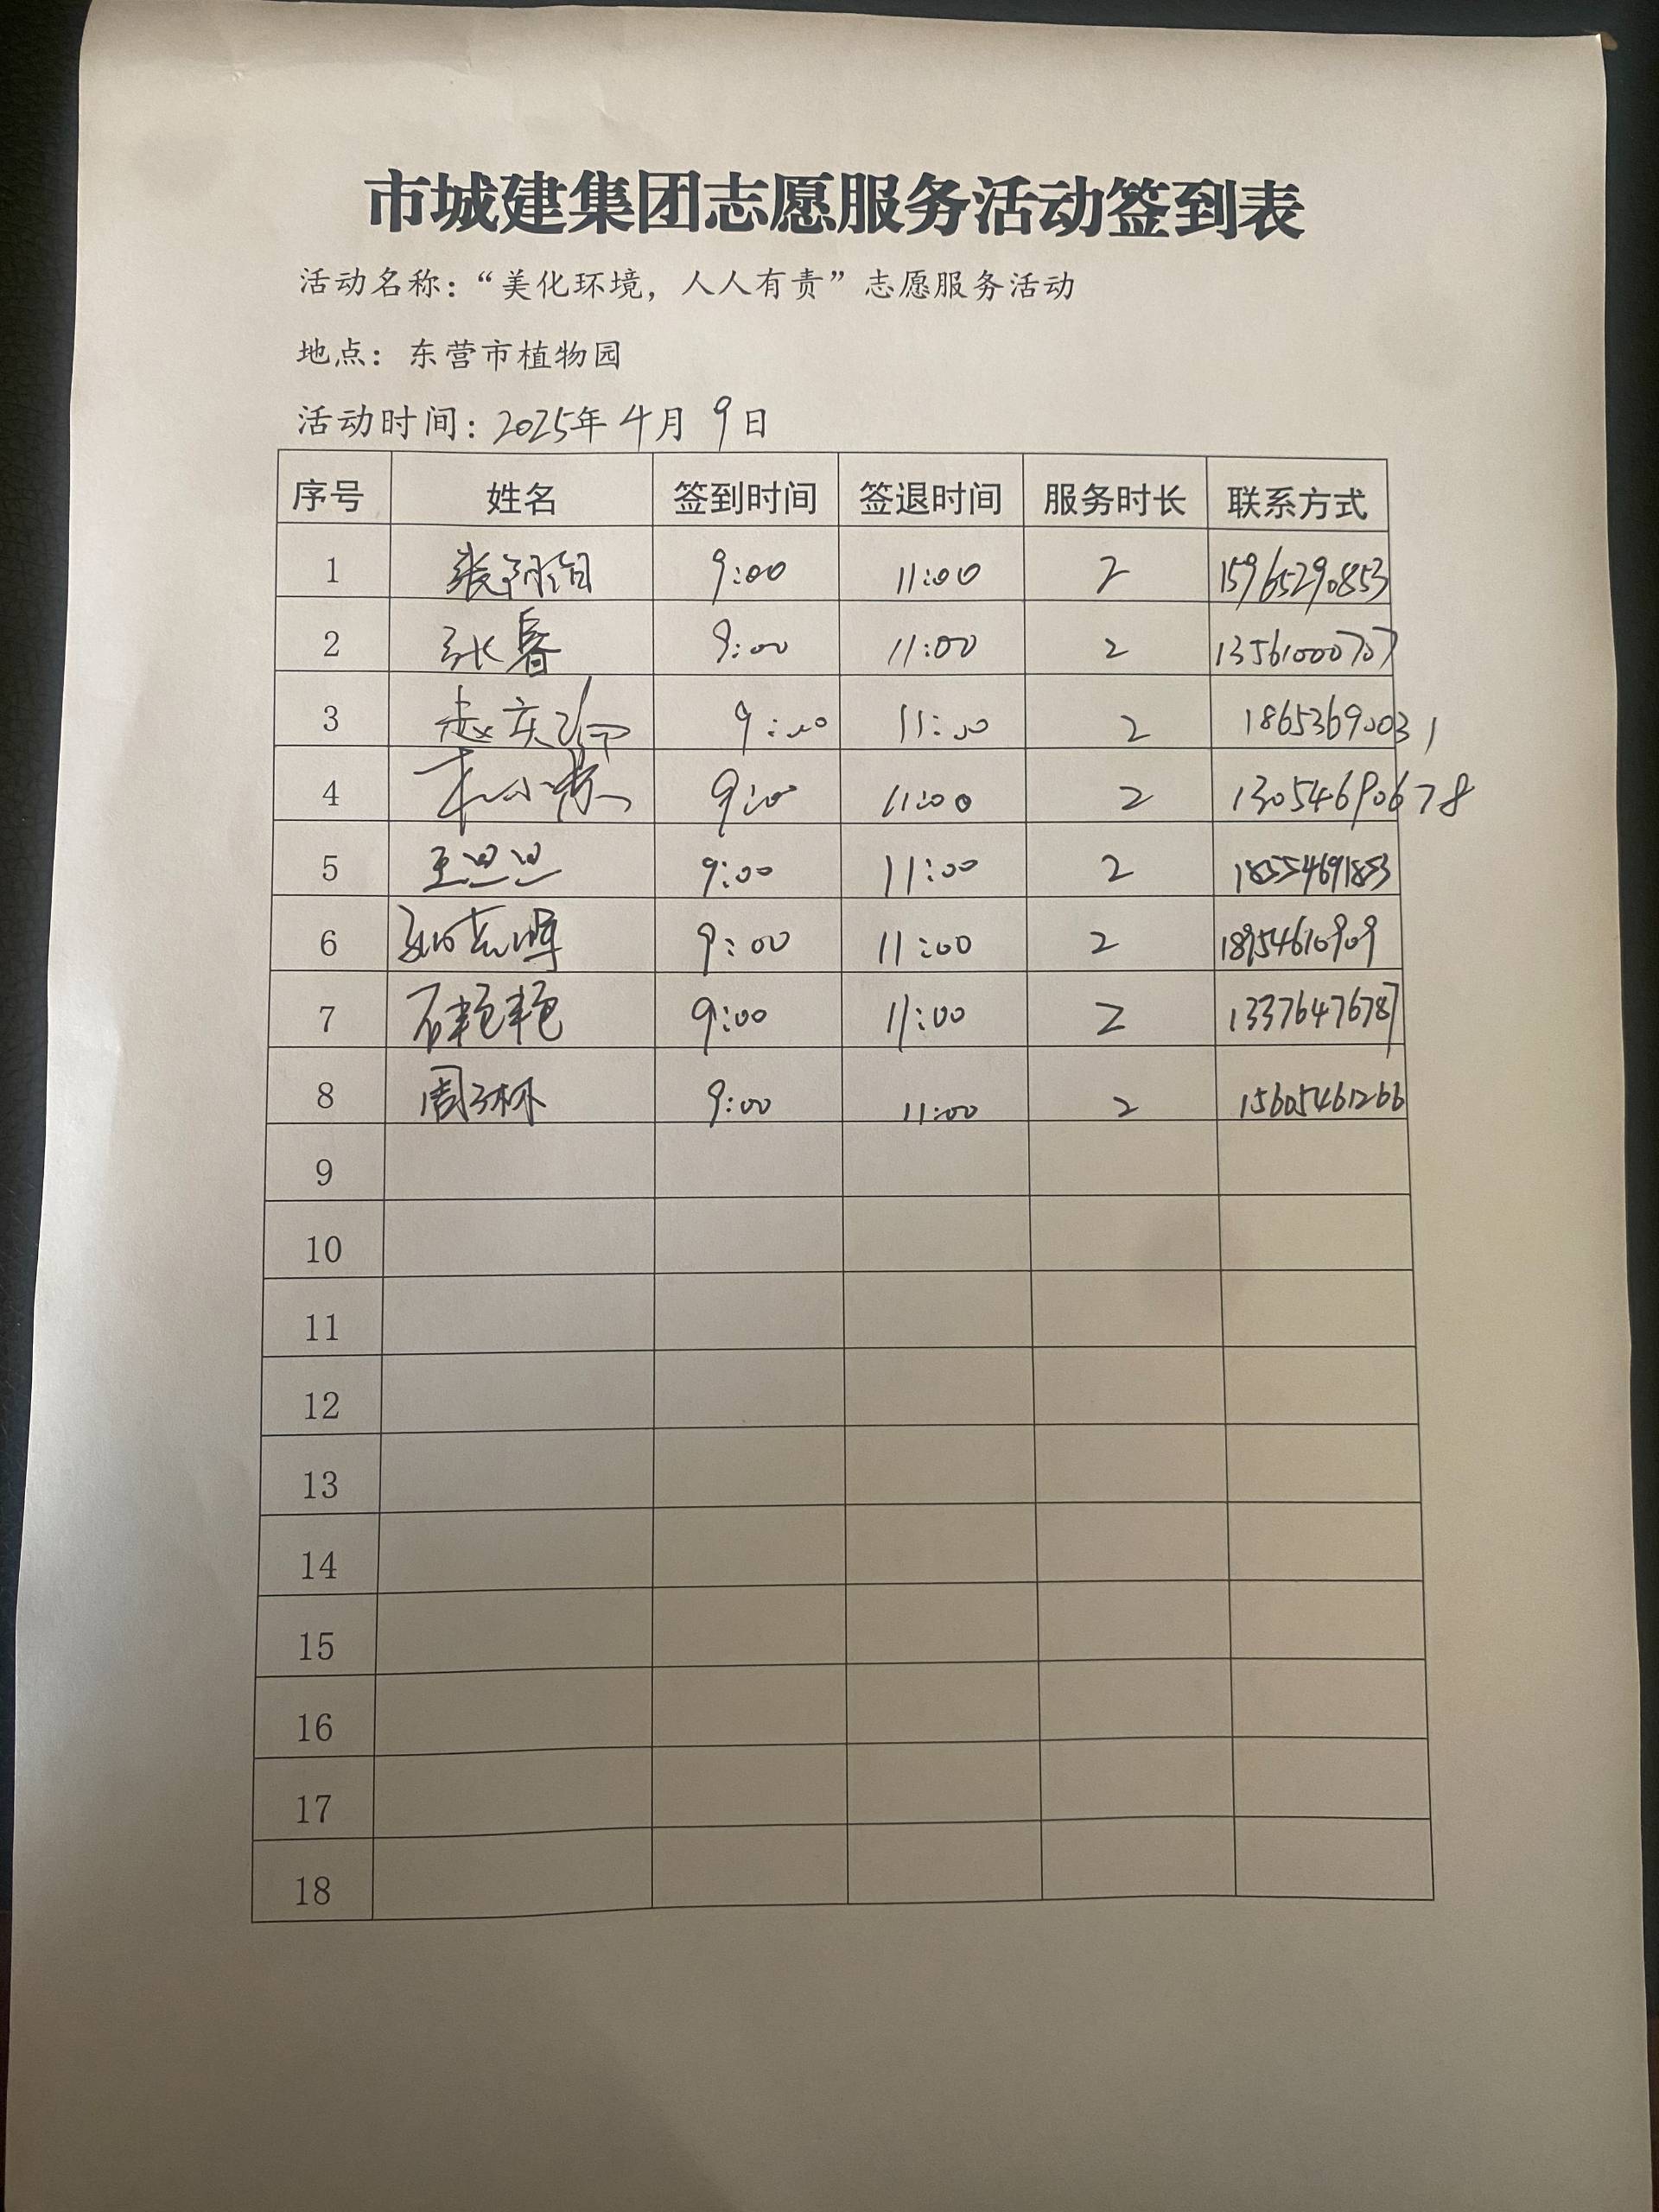 市城建集团志愿服务活动签到表
活动名称：“美化环境，人人有责”志愿服务活动
地点：东营市植物园
活动时间：2025年4月9日
序号 姓名 签到时间 签退时间 服务时长 联系方式
1 张 9:00 11:00 2 15965290853
2 张 9:00 11:00 2 13561000707
3 赵庆 9:00 11:00 2 18653690031
4 小 9:00 11:00 2 13054690678
5 王旦旦 9:00 11:00 2 18554691853
6 志晖 9:00 11:00 2 18954610909
7 石艳艳 9:00 11:00 2 13376476787
8 周子琳 9:00 11:00 2 15605461266
9
10
11
12
13
14
15
16
17
18